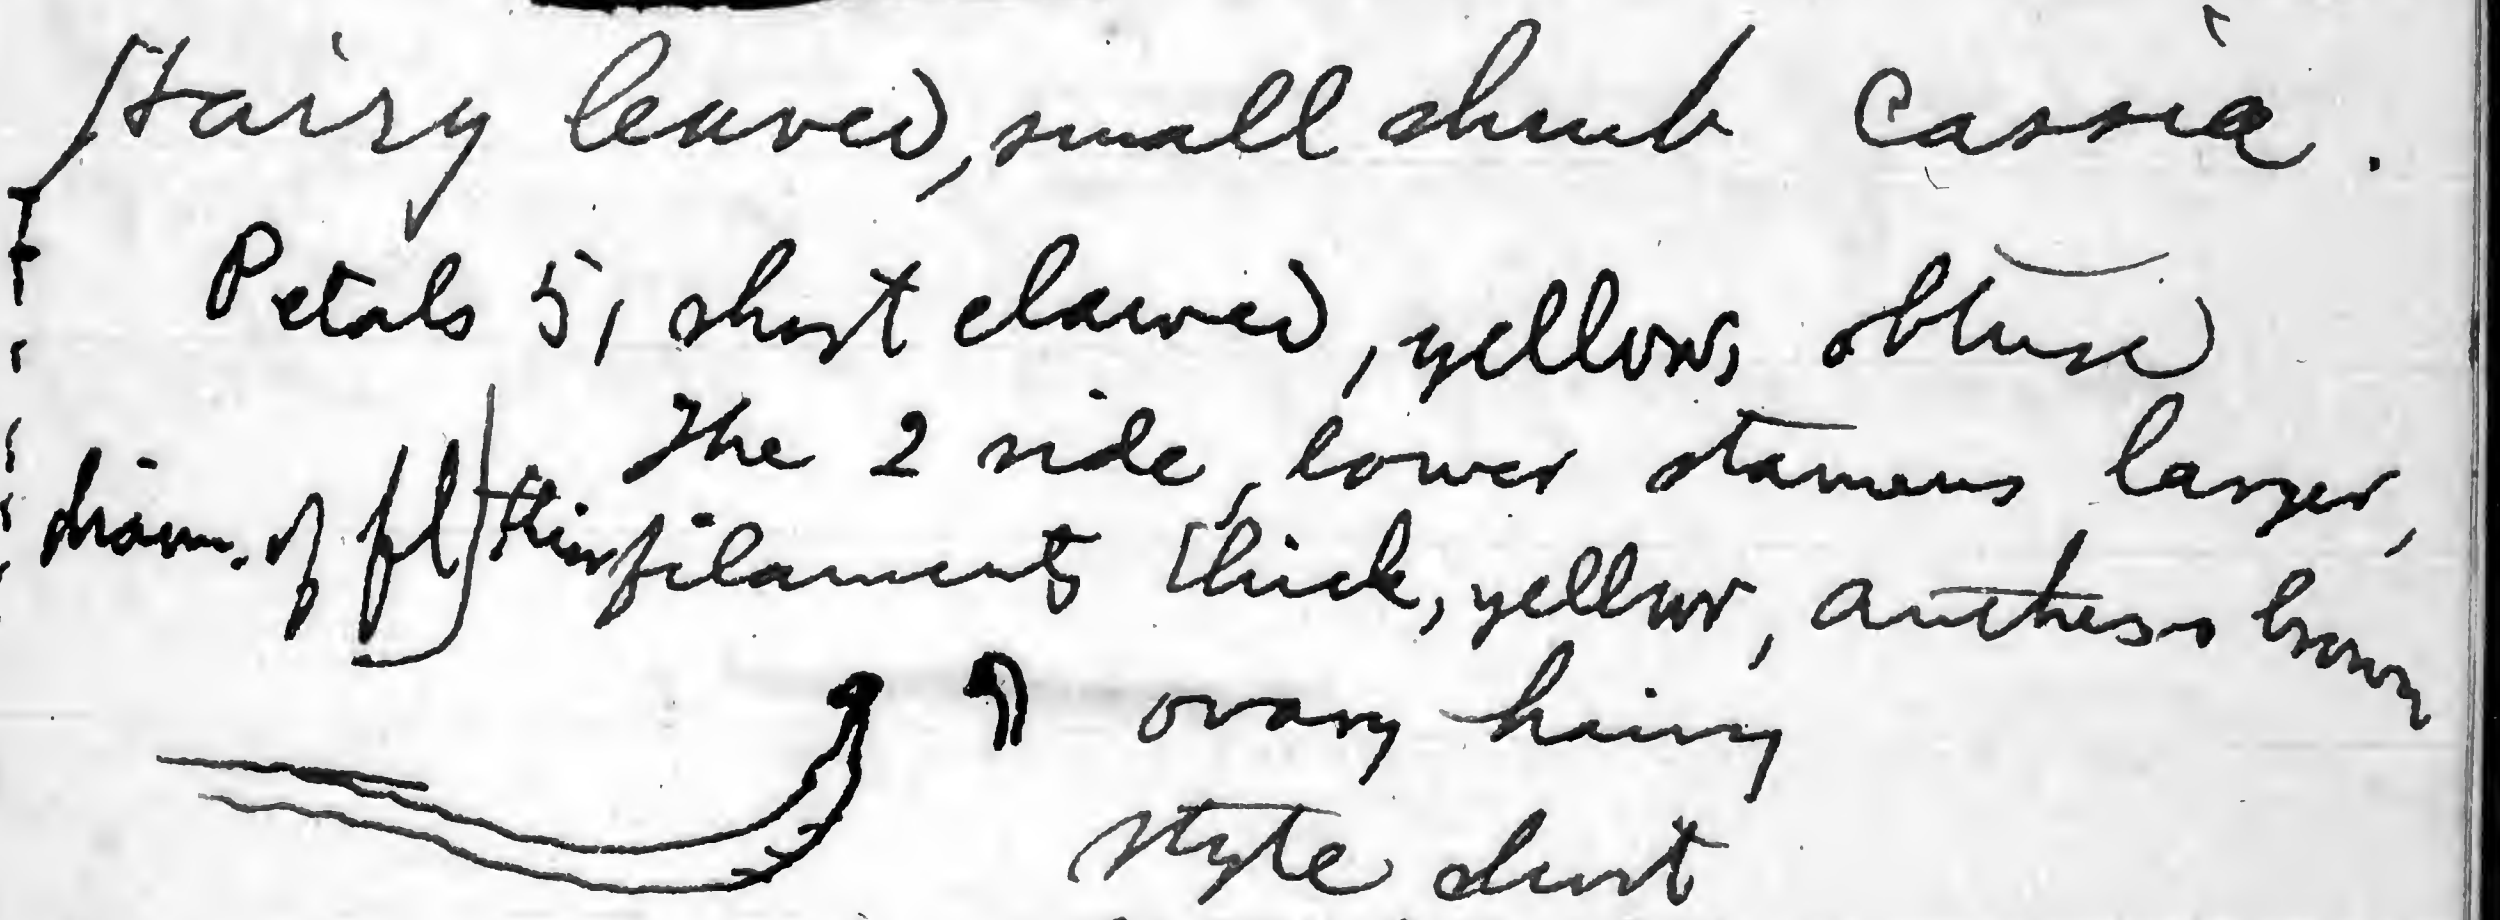 Hairy leaved, small shrub Cassia.
Petals 5, short clawed, yellow, obtuse
The 2 side, lower stamens larger,
of fl] their filaments thick, yellow, anthers brown
ovary hairy
style short